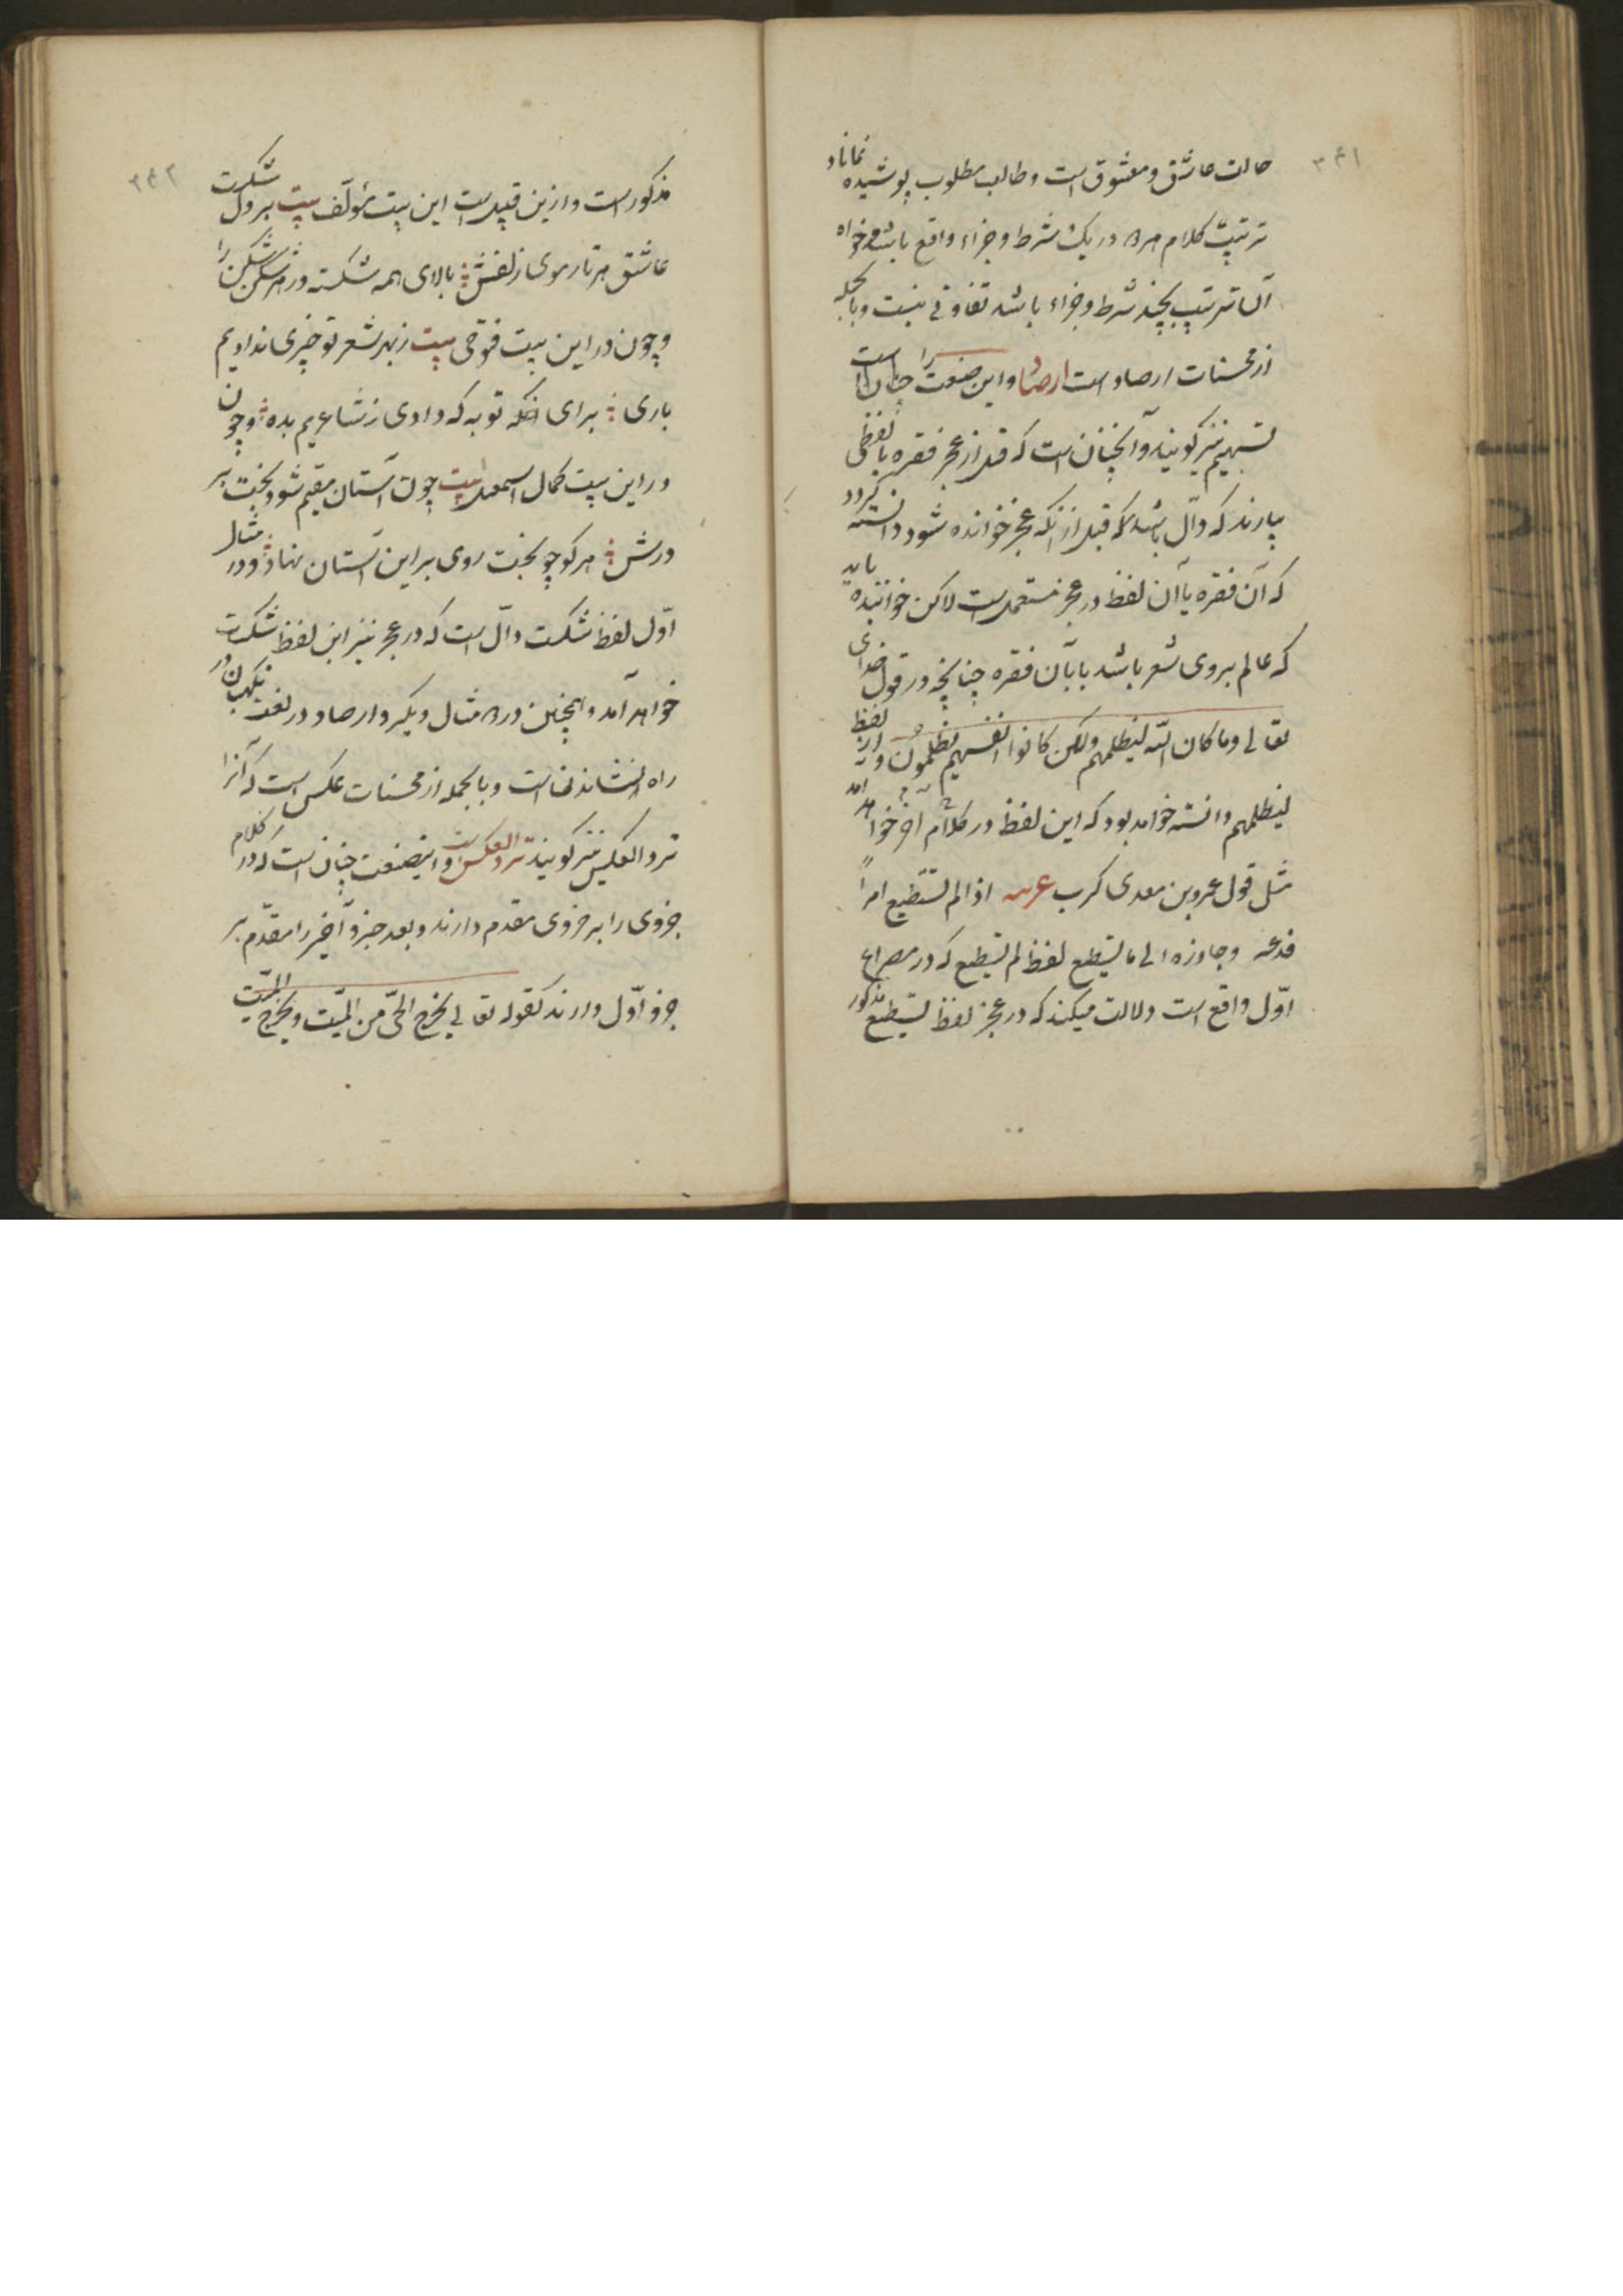 ۳۴۱
حالت عاشق و معشوق است و طالب مطلوب پوشیده نماناد
ترتیب کلام هرگاه در یک شرط و جزاء واقع باشد و خواه
آن ترتیب بچند شرط و جزاء باشد تفاوتی نیست و بالجمله
از محسنات ارصاد است ارصاد و این صنعت را چنان است
تسهیم نیز گویند و آنچنان است که قبل از عجز فقره یا لفظی
بیارند که دال باشد که قبل از آنکه عجز خوانده شود دانسته گردد
که آن فقره یا آن لفظ در عجز مستعمل است لاکن خواننده باید
که عالم بروی شعر باشد یا بآن فقره چنانچه در قول خدای
تعالی وما کان الله لیظلمهم ولکن کانوا انفسهم یظلمون و از لفظ
لیظلمهم دانسته خواهد بود که این لفظ در کلام آخر خواهد آمد
مثل قول عمرو بن معدی کرب عربیه اذا لم تستطیع امراً
فدعه وجاوزه الی ما تستطیع لفظ لم تستطیع که در مصراع
اوّل واقع است دلالت میکند که در عجز لفظ تستطیع مذکور
۳۴۲
مذکور است و ازین قبیل است این بیت مؤلّف بیت بر دل شکست
عاشق هر تار موی زلفش بالای همه شکسته در هر شکن شکن را
و چون در این بیت فتوحی بیت ز بهر شعر تو چیزی نداد یم
باری برای آنکه توبه که دادی ز شاعریم بده و چون
در این بیت کمال اسمعیل بیت چون آستان مقیم شود بخت بر
درش هر کو چو بخت روی بر این آستان نهاد و در مثال
اوّل لفظ شکست دالّ است که در عجز نیز این لفظ شکست
خواهد آمد و همچنین در مثال دیگر و ارصاد در لغت نگهبان در
راه نشاندن است و بالجمله از محسنات عکس است که آنرا
ترد العکس نیز گویند ترد العکس و این صنعت چنان است که در کلام
جزوی را بر جزوی مقدم دارند و بعد جزو آخر را مقدّم بر
جزو اوّل دارند کقوله تعالی یخرج الحیّ من المیّت ویخرج المیّت